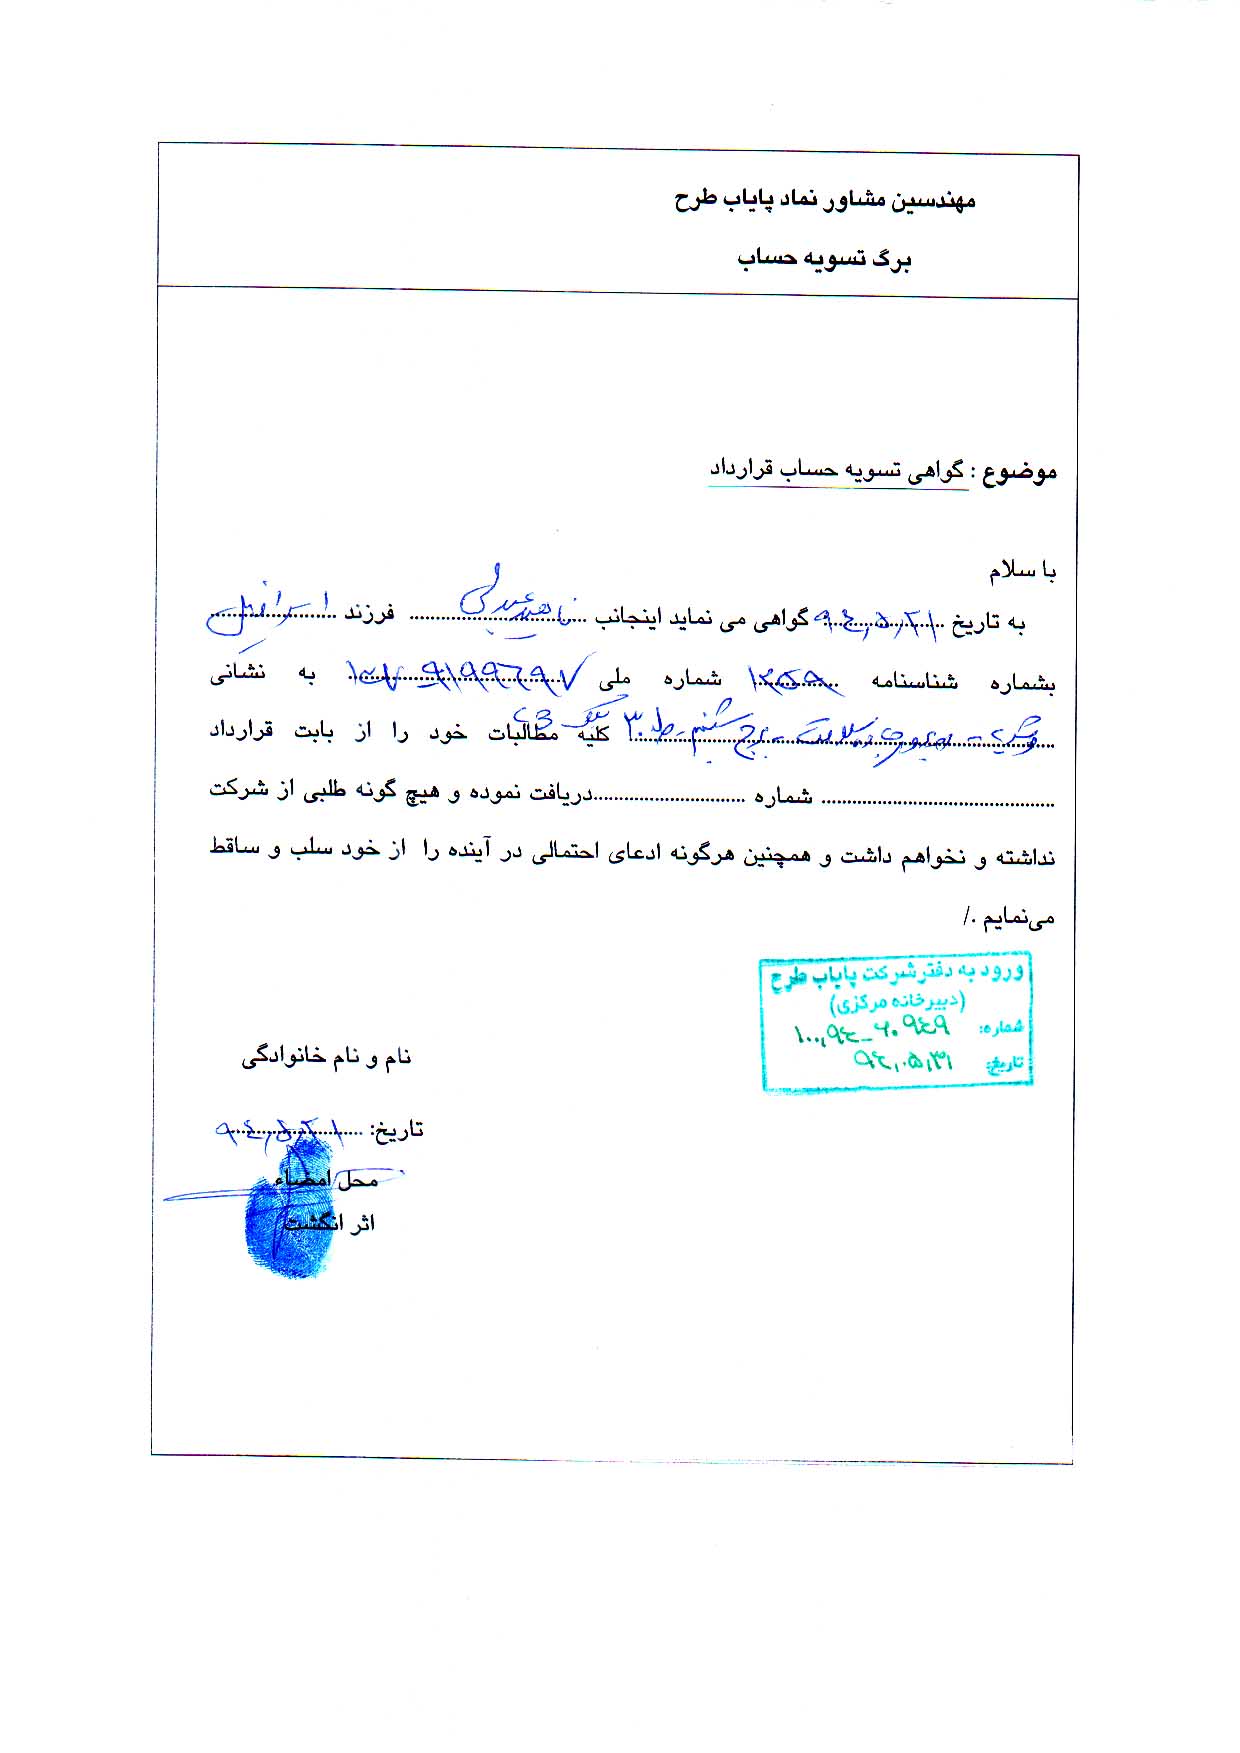 مهندسین مشاور نماد پایاب طرح
برگ تسویه حساب
موضوع : گواهی تسویه حساب قرارداد
با سلام
به تاریخ ۹۴,۵,۳۱ گواهی می نماید اینجانب ناهید عبدلی فرزند اسرافیل
بشماره شناسنامه ۱۳۵۹ شماره ملی به نشانی
برج ط ۳۰ کلیه مطالبات خود را از بابت قرارداد
............ شماره ............دریافت نموده و هیچ گونه طلبی از شرکت
نداشته و نخواهم داشت و همچنین هرگونه ادعای احتمالی در آینده را از خود سلب و ساقط
می‌نمایم ./
ورود به دفتر شرکت پایاب طرح
(دبیرخانه مرکزی)
شماره: ۱۰۰,۹۴_۲۰۹۴۹
تاریخ: ۹۴,۰۵,۳۱
نام و نام خانوادگی
تاریخ: ۹۴,۵,۳۱
محل امضاء
اثر انگشت